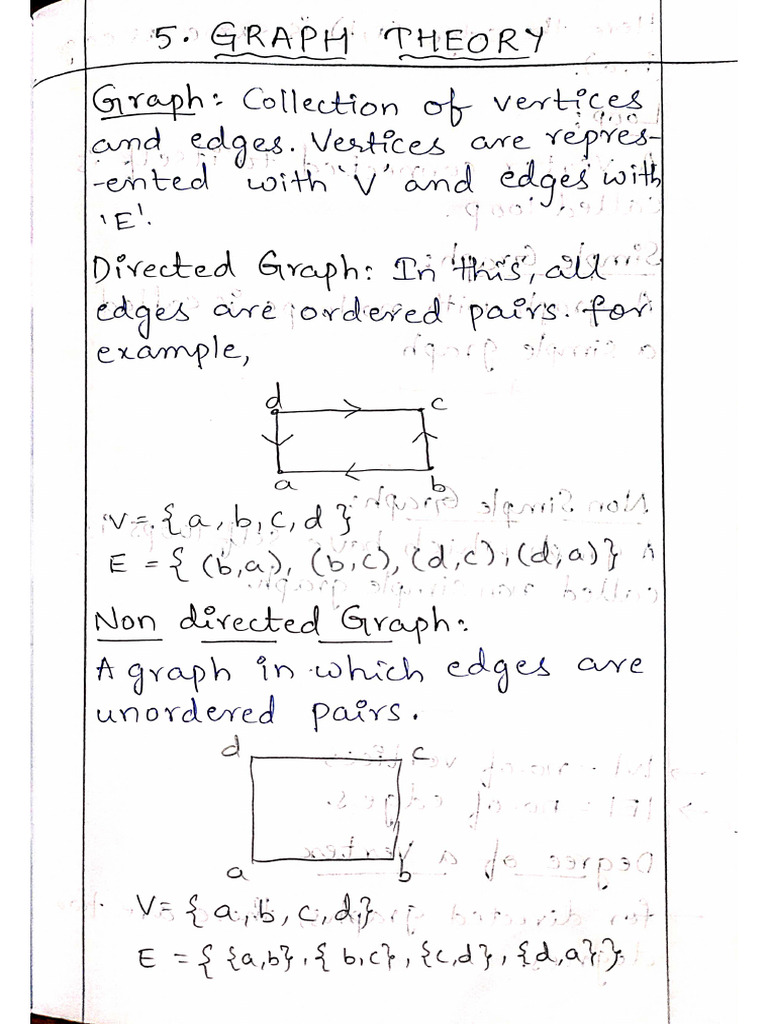 5. GRAPH THEORY
Graph: Collection of vertices
and edges. Vertices are repres-
-ented with 'V' and edges with
'E'.
Directed Graph: In this, all
edges are ordered pairs. for
example,
d c
a b
V = {a, b, c, d}
E = { (b,a), (b,c), (d,c), (d,a)}
Non directed Graph:
A graph in which edges are
unordered pairs.
d c
a b
V= {a, b, c, d}
E = { {a,b}, { b,c}, {c,d}, {d,a}}